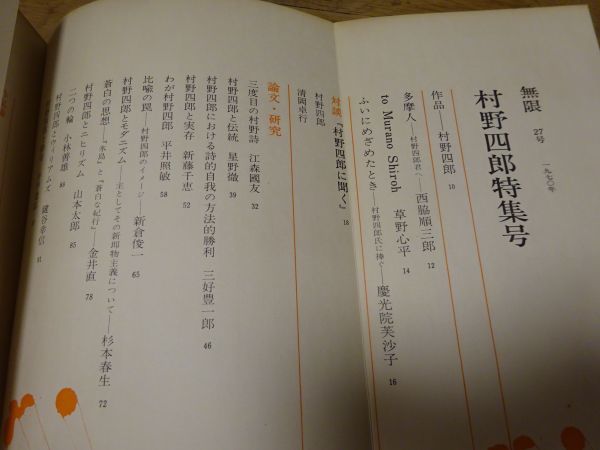 無限 27号 一九七〇年
村野四郎特集号
作品──村野四郎 10
多摩人──村野四郎君へ──西脇順三郎 12
to Murano Shiroh 草野心平 14
ふいにめざめたとき──村野四郎氏に捧ぐ──慶光院芙沙子 16
対談『村野四郎に聞く』 18
村野四郎
清岡卓行
論文・研究
三度目の村野詩 江森國友 32
村野四郎と伝統 星野徹 39
村野四郎における詩的自我の方法的勝利 三好豊一郎 46
村野四郎と実存 新藤千恵 52
わが村野四郎 平井照敏 58
比喩の罠──村野四郎のイメージ──新倉俊一 65
村野四郎とモダニズム──主としてその新即物主義について──杉本春生 72
蒼白の思想──『亡羊記』と『蒼白な紀行』──金井直 78
村野四郎とニヒリズム 山本太郎 85
二つの輪 小林善雄 88
村野四郎とウィリアムズ 鍵谷幸信 91